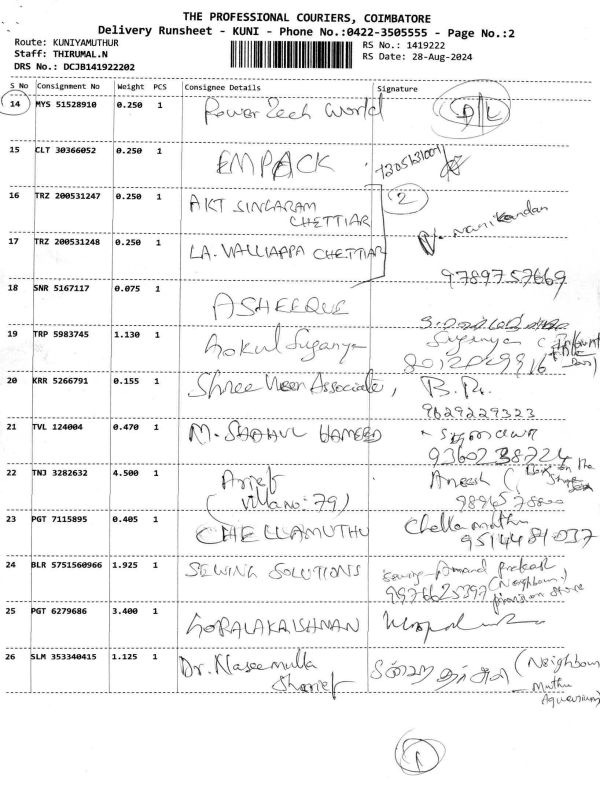 THE PROFESSIONAL COURIERS, COIMBATORE
Delivery Runsheet - KUNI - Phone No.:0422-3505555 - Page No.:2
Route: KUNIYAMUTHUR
Staff: THIRUMAL.N
DRS No.: DCJB141922202
RS No.: 1419222
RS Date: 28-Aug-2024
S No Consignment No Weight PCS Consignee Details Signature
14 MYS 51528910 0.250 1 Power Tech World D/L
15 CLT 30366052 0.250 1 EMPACK
16 TRZ 200531247 0.250 1 AKT SINGARAM
CHETTIAR 2
17 TRZ 200531248 0.250 1 LA. VALLIAPPA CHETTIAR Manikandan
9789757669
18 SNR 5167117 0.075 1 ASHEEQUE
19 TRP 5983745 1.130 1 Gokul Suganya Suganya
20 KRR 5266791 0.155 1 Shree Associate, B.
9629229323
21 TVL 124004 0.470 1 M. SHAHUL HAMEED
9360238724
22 TNJ 3282632 4.500 1 Arief
(Villa no: 79) Aneesh
23 PGT 7115895 0.405 1 CHELLAMUTHU Chellamuthu
9514481037
24 BLR 5751560966 1.925 1 SEWING SOLUTIONS Anand Prakash
9976625397 (Neighbour)
provision store
25 PGT 6279686 3.400 1 GOPALAKRISHNAN
26 SLM 353340415 1.125 1 Dr. Naseemulla
Sharief (Neighbour
Muthu
Aquarium)
1